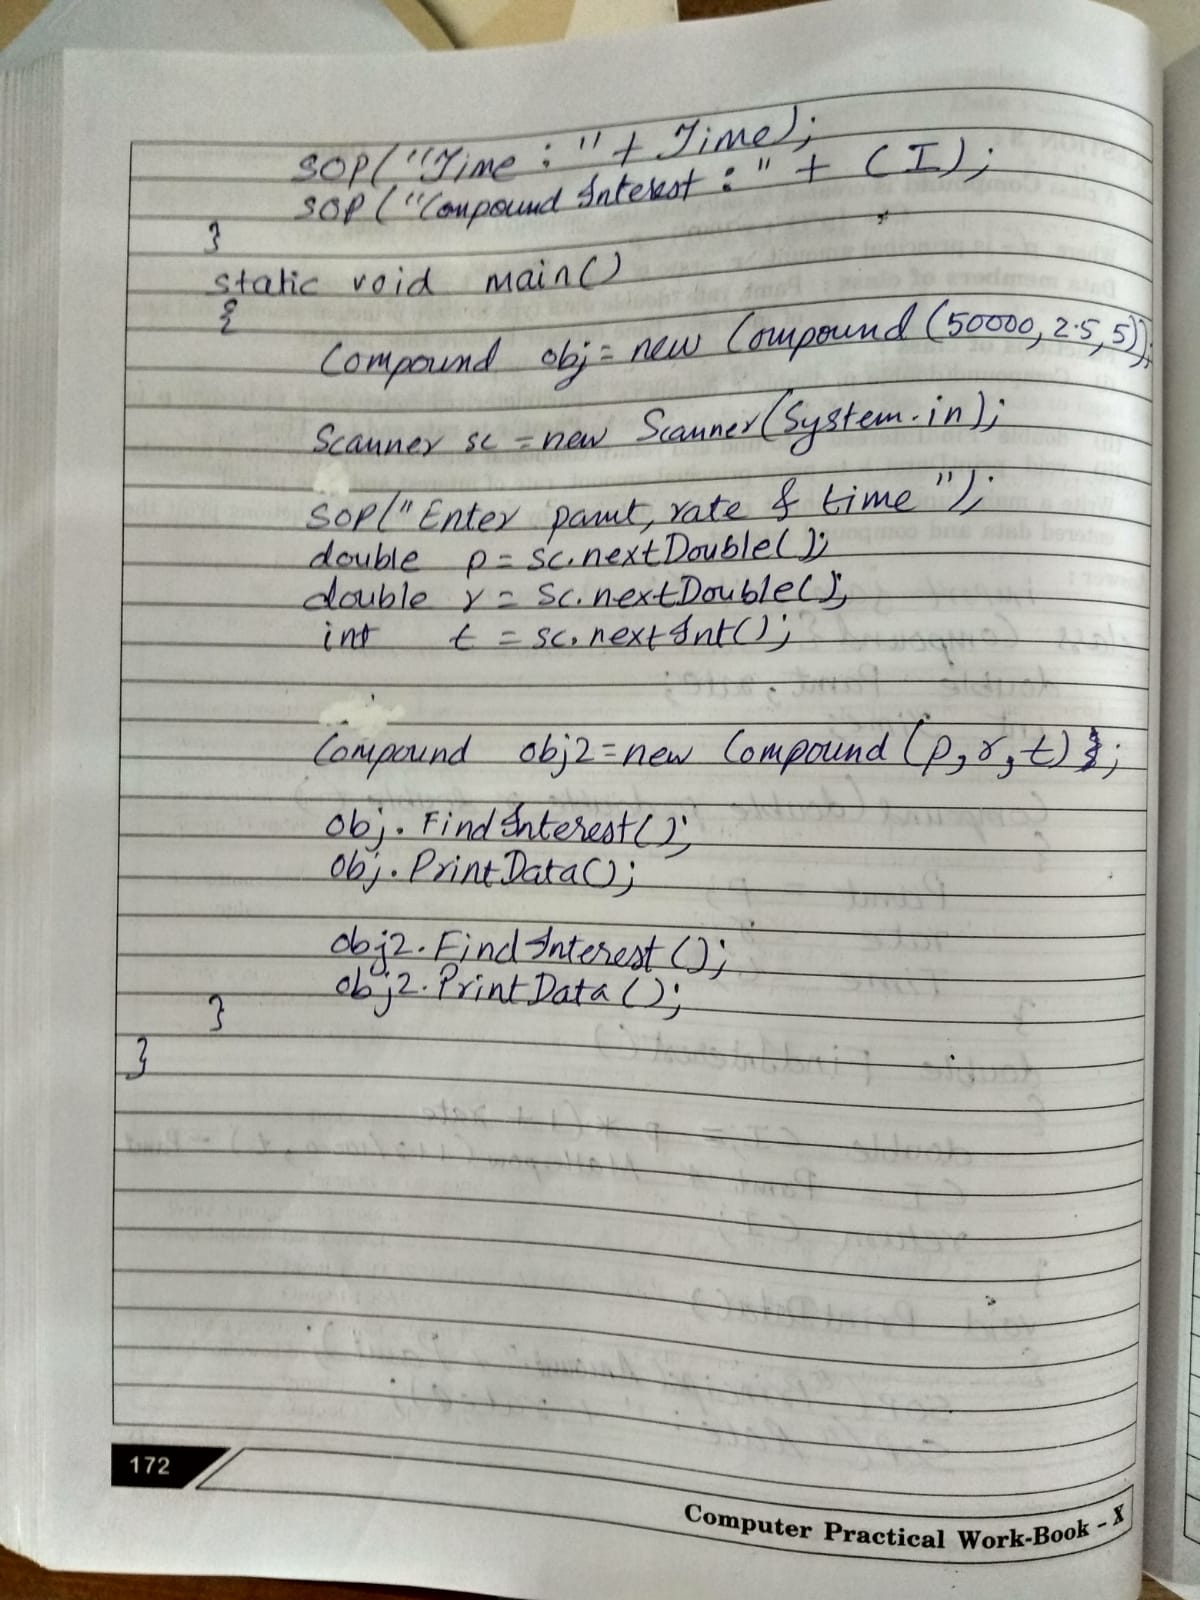 SOP("Time : " + Time);
SOP("Compound Interest : " + CI);
}
static void main()
{
Compound obj = new Compound(50000, 2.5, 5);
Scanner sc = new Scanner(System.in);
SOP("Enter pamt, rate & time");
double p = sc.nextDouble();
double r = sc.nextDouble();
int t = sc.nextInt();
Compound obj2 = new Compound(p, r, t);
obj.FindInterest();
obj.PrintData();
obj2.FindInterest();
obj2.PrintData();
}
}
172
Computer Practical Work-Book - X